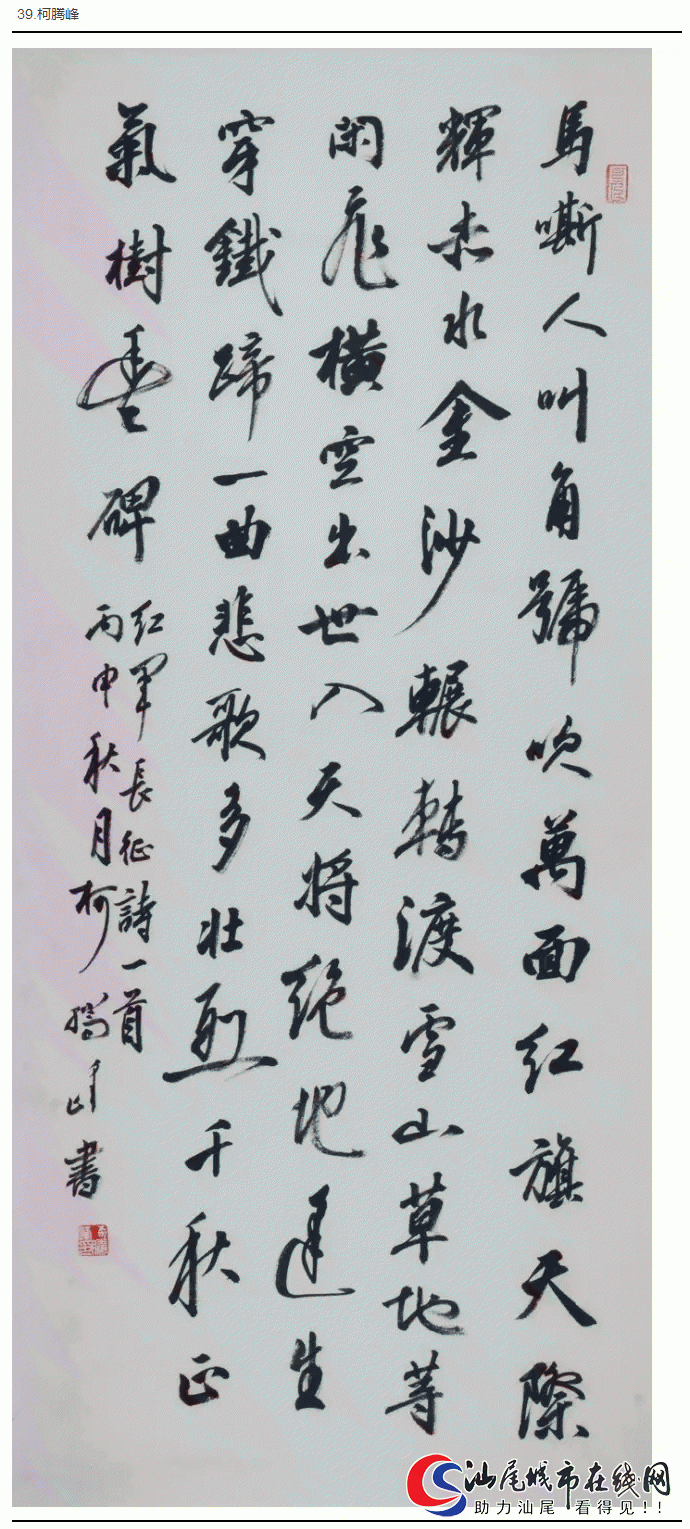 39.柯腾峰
馬嘶人叫角號吹萬面紅旗天際
輝赤水金沙輾轉渡雪山草地等
閑飛橫空出世入天將絕地逢生
穿鐵蹄一曲悲歌多壯烈千秋正
氣樹豐碑
紅軍長征詩一首
丙申秋月柯騰峰書
汕尾城市在线网
助力汕尾 看得见!!